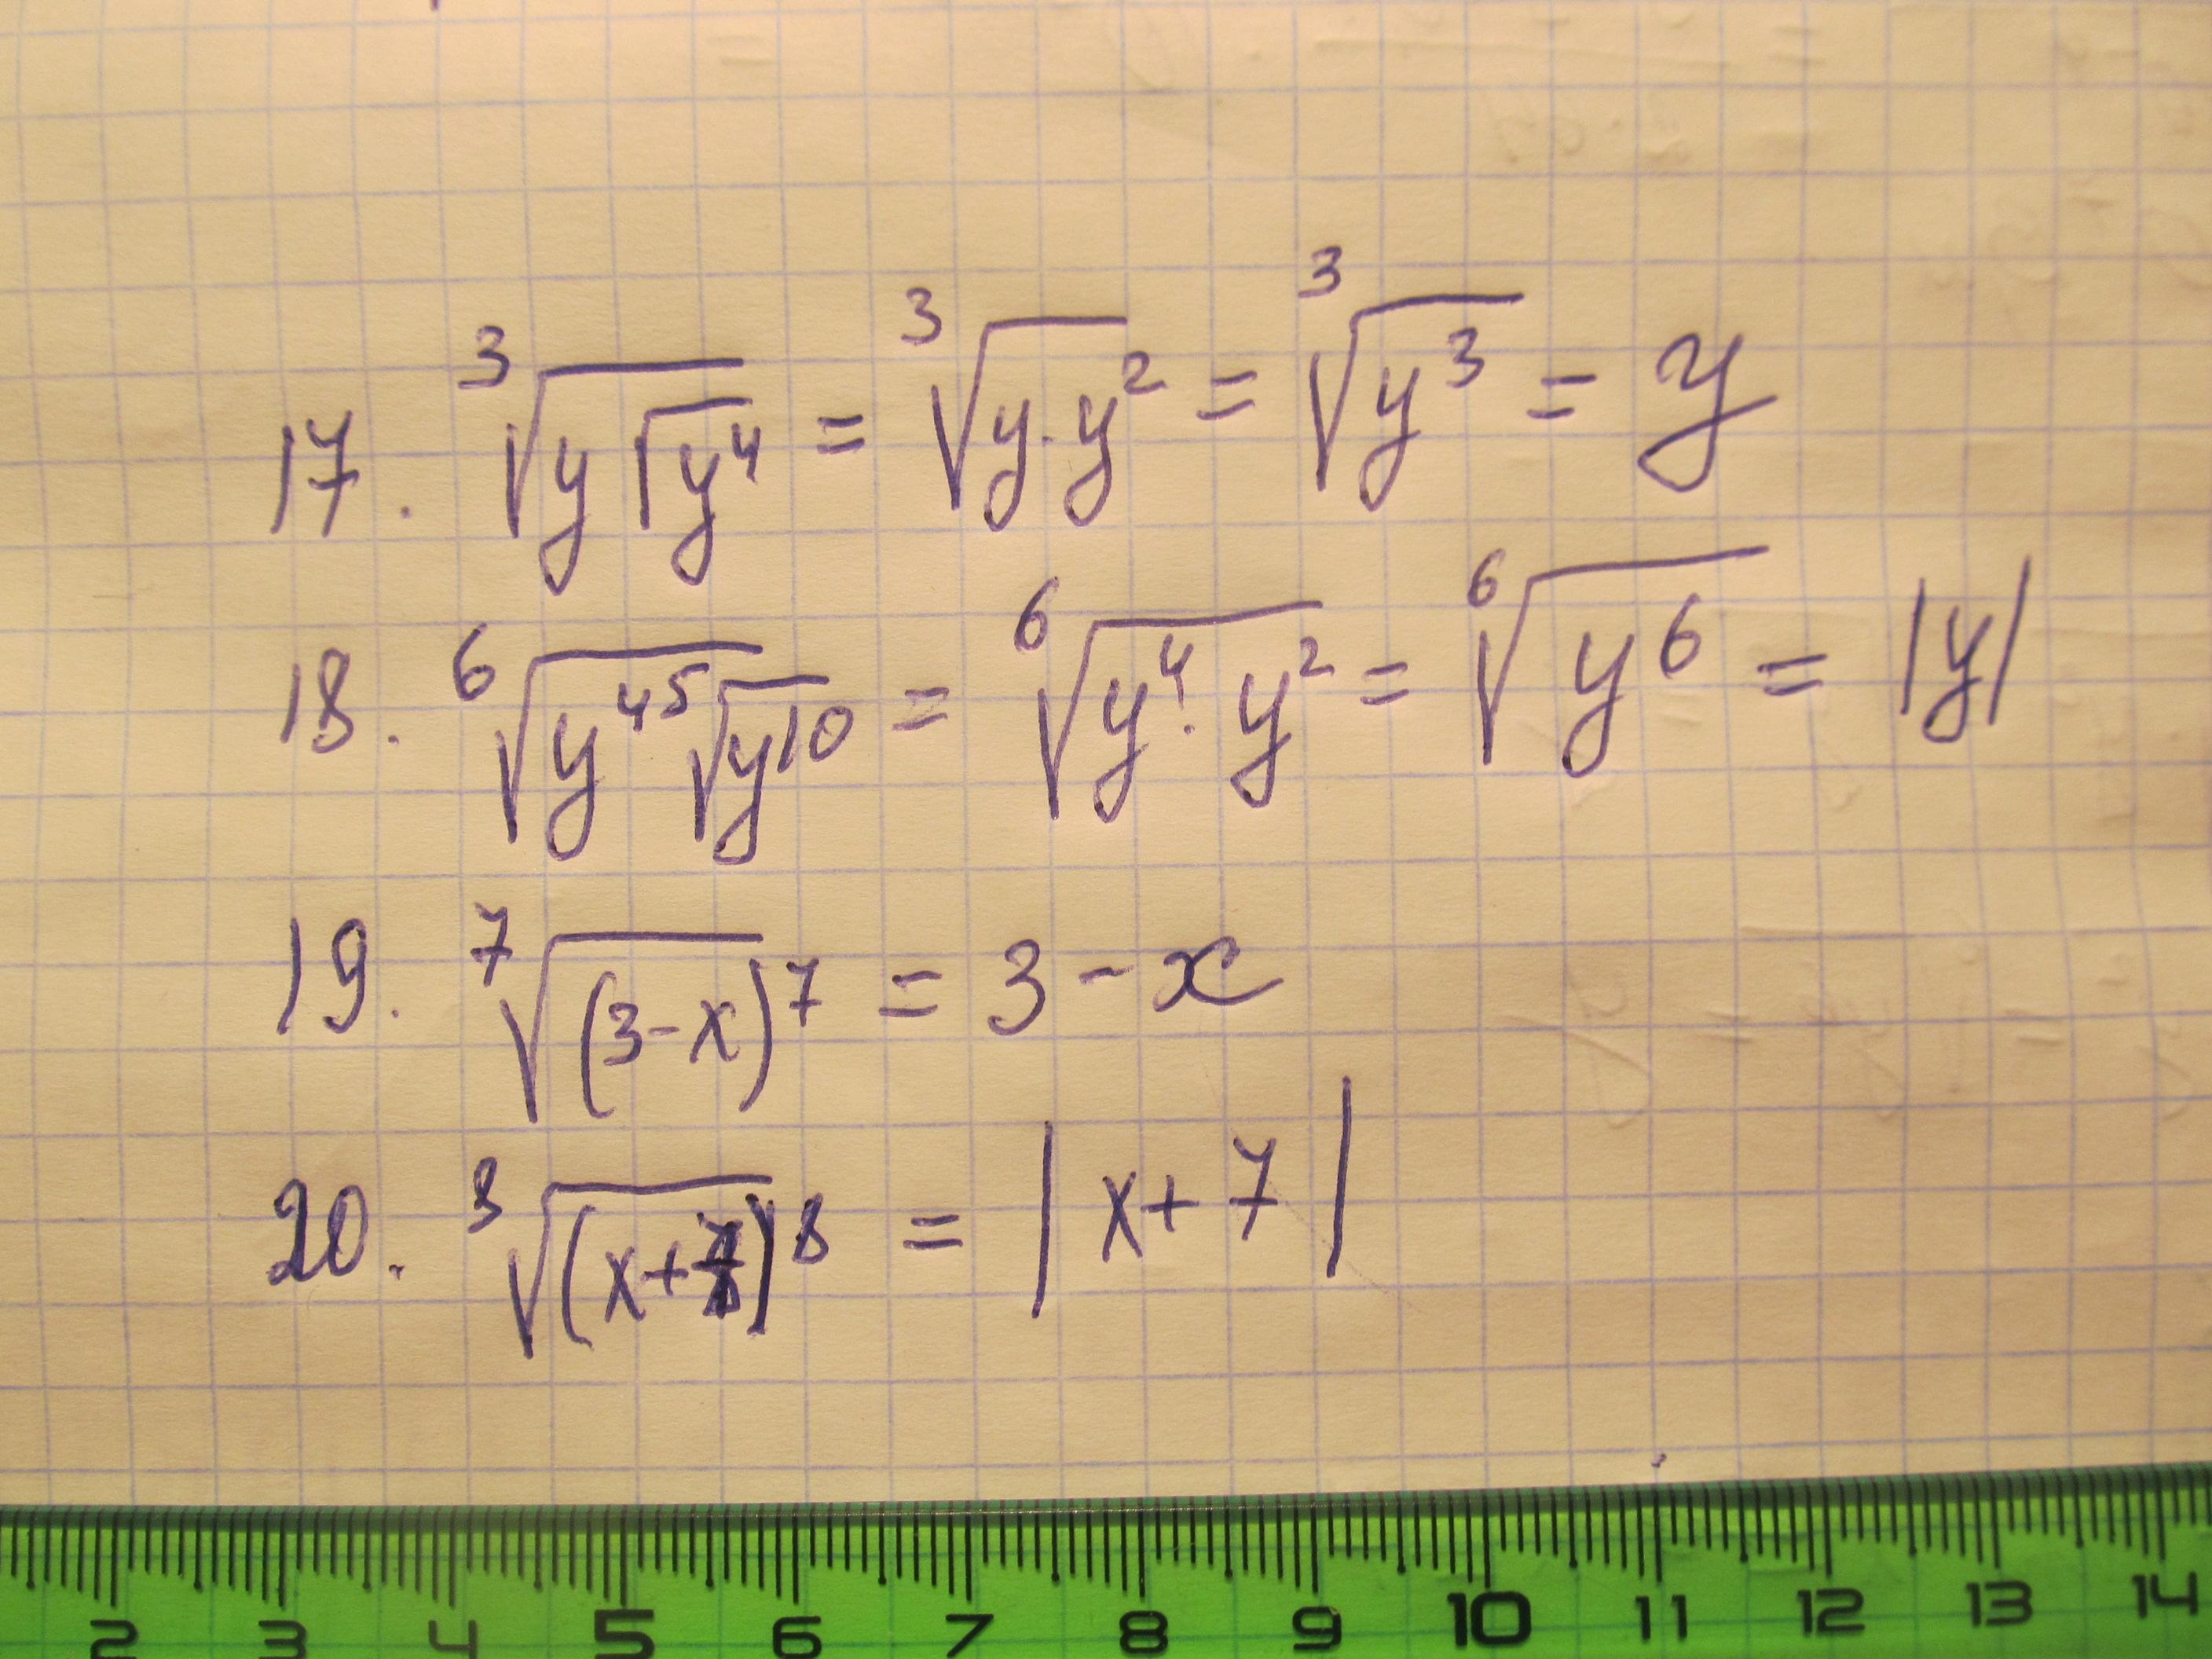 17. ∛(y√(y⁴)) = ∛(y·y²) = ∛(y³) = y
18. ⁶√(y⁴ ⁵√(y¹⁰)) = ⁶√(y⁴·y²) = ⁶√(y⁶) = |y|
19. ⁷√((3-x)⁷) = 3-x
20. ⁸√((x+7)⁸) = |x+7|
2 3 4 5 6 7 8 9 10 11 12 13 14